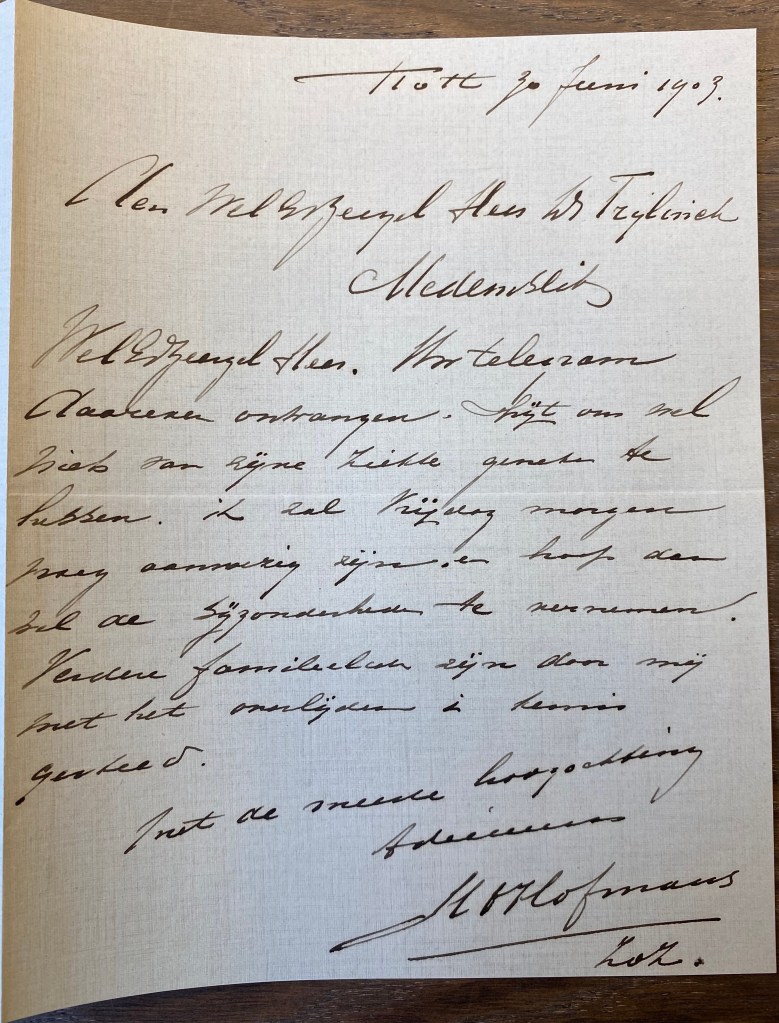 Rott 30 Juni 1903.
Aan Wel EdZeergel Heer Dr
Medemblik
Wel EdZeergel Heer. Uw telegram
daareven ontvangen. Spijt ons wel
niets van zijne ziekte geweten te
hebben. ik zal Vrijdag morgen
vroeg aanwezig zijn en hoop dan
wel de bijzonderheden te vernemen.
Verdere familieleden zijn door mij
met het overlijden in kennis
gesteld.
Met de meeste hoogachting
Adieerens
Hofmans
ZOZ.